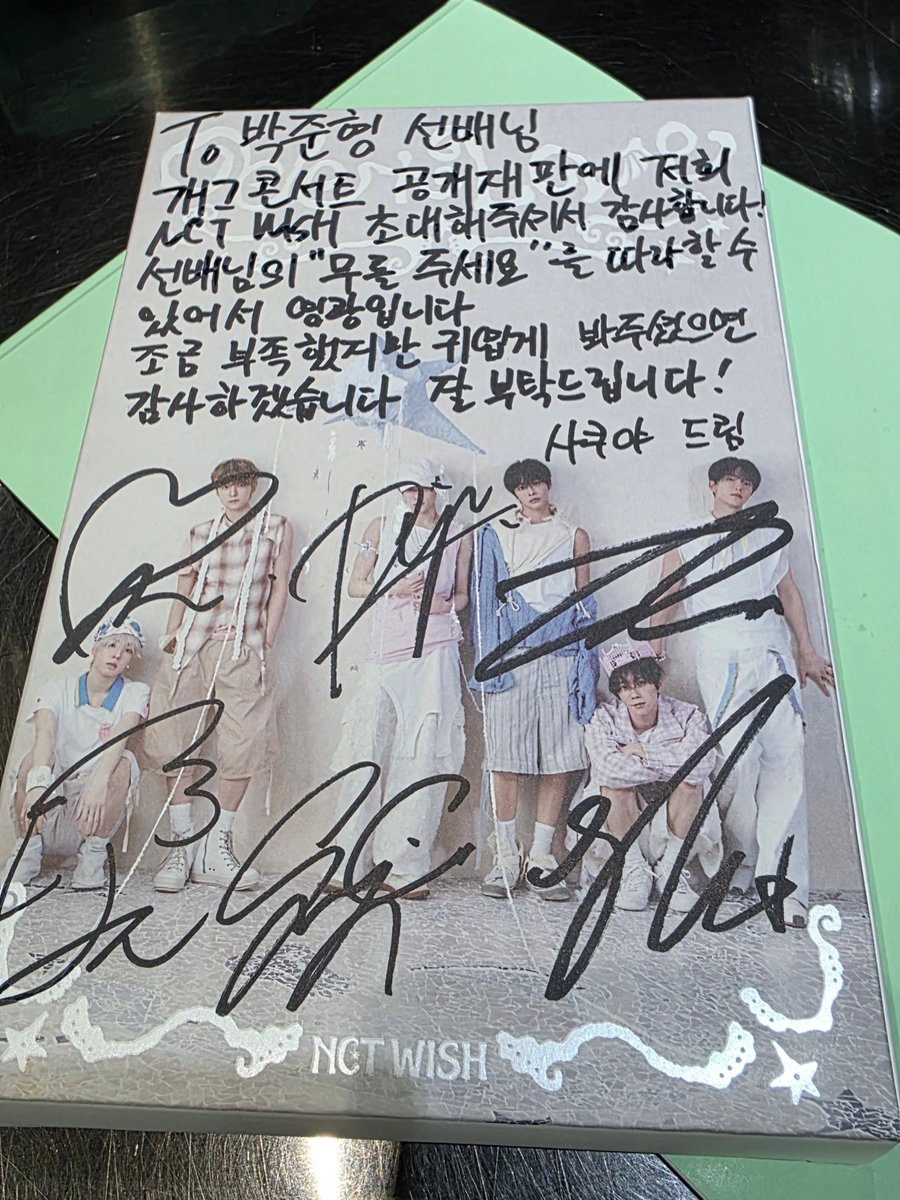 To 박준형 선배님
개그콘서트 공개재판에 저희
NCT WISH 초대해주셔서 감사합니다!
선배님의 "무를 주세요"를 따라할 수
있어서 영광입니다
조금 부족했지만 귀엽게 봐주셨으면
감사하겠습니다 잘 부탁드립니다!
사쿠야 드림
NCT WISH